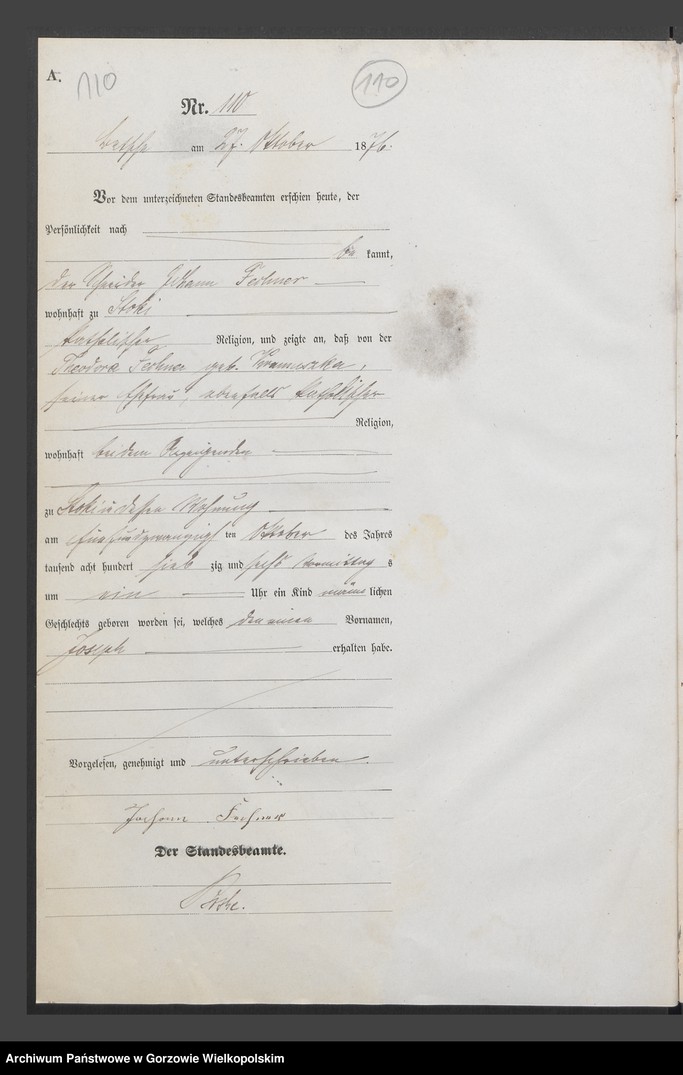 A.
110
110
Nr. 110
Betsche am 27. Oktober 1876.
Vor dem unterzeichneten Standesbeamten erschien heute, der
Persönlichkeit nach
be kannt,
der Johann Fechner
wohnhaft zu Stoki
katholischer Religion, und zeigte an, daß von der
Theodora Fechner geb.
seiner Ehefrau, ebenfalls katholischer
Religion,
wohnhaft bei dem
zu Stoki in dessen Wohnung
am fünfundzwanzig ten Oktober des Jahres
tausend acht hundert sieb zig und sechs Vormittag s
um ein Uhr ein Kind männ lichen
Geschlechts geboren worden sei, welches den einen Vornamen,
Joseph erhalten habe.
Vorgelesen, genehmigt und unterschrieben.
Johann Fechner
Der Standesbeamte.
Archiwum Państwowe w Gorzowie Wielkopolskim